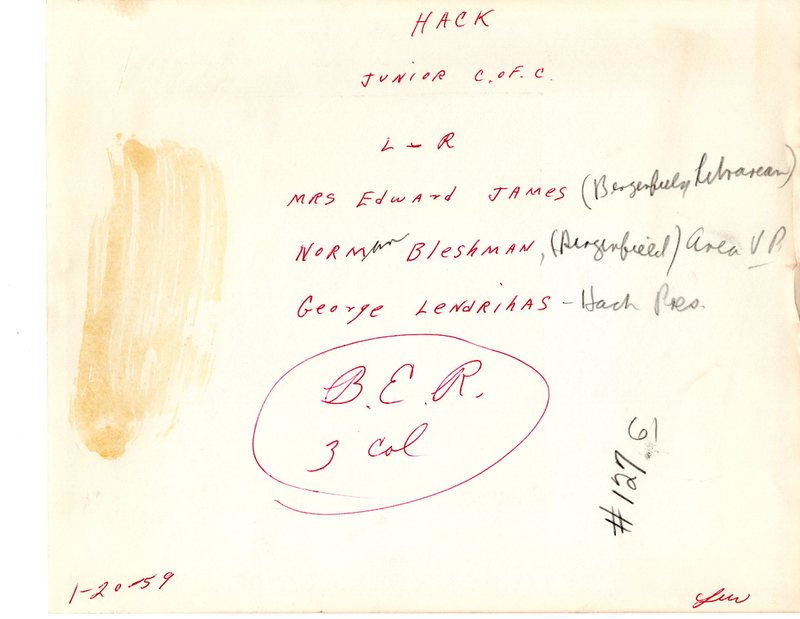 HACK
JUNIOR C. of. C.
L - R
MRS Edward JAMES (Bergenfield Librarian)
NORMan Bleshman, (Bergenfield) Area V P
George LendrihAS - Hack Pres.
B. E. R.
3 col
#127
1-20-59